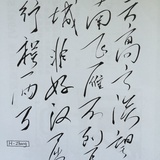 天高云淡望
南飞雁不到
城非好汉屈
行程二万